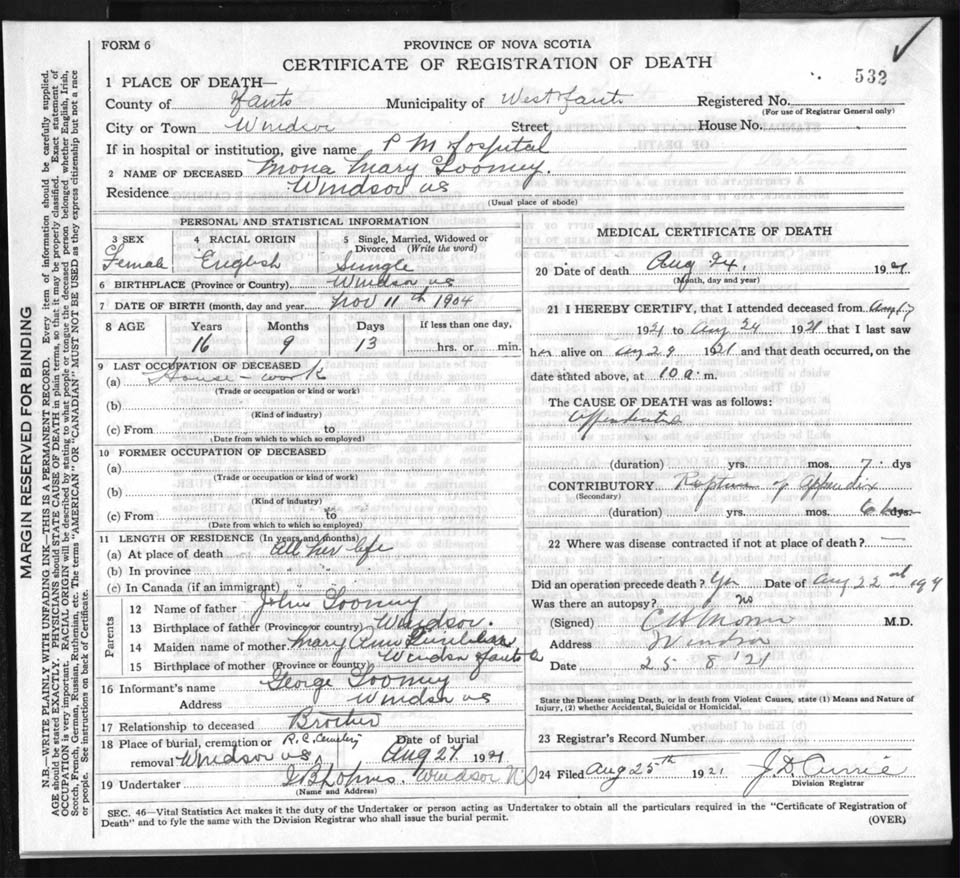 FORM 6
PROVINCE OF NOVA SCOTIA
CERTIFICATE OF REGISTRATION OF DEATH
532
1 PLACE OF DEATH—
County of Hants Municipality of West Hants Registered No.
(For use of Registrar General only)
City or Town Windsor Street House No.
If in hospital or institution, give name P M Hospital
2 NAME OF DECEASED Mona Mary Toomey.
Residence Windsor NS
(Usual place of abode)
PERSONAL AND STATISTICAL INFORMATION
3 SEX Female
4 RACIAL ORIGIN English
5 Single, Married, Widowed or Divorced (Write the word) Single
6 BIRTHPLACE (Province or Country) Windsor NS
7 DATE OF BIRTH (month, day and year) Nov 11th 1904
8 AGE Years Months Days If less than one day,
16 9 13 hrs. or min.
9 LAST OCCUPATION OF DECEASED
(a) House-work
(Trade or occupation or kind or work)
(b)
(Kind of industry)
(c) From to
(Date from which to which so employed)
10 FORMER OCCUPATION OF DECEASED
(a)
(Trade or occupation or kind of work)
(b)
(Kind of industry)
(c) From to
(Date from which to which so employed)
11 LENGTH OF RESIDENCE (In years and months)
(a) At place of death all her life
(b) In province " " "
(c) In Canada (if an immigrant) " " "
Parents
12 Name of father John Toomey
13 Birthplace of father (Province or country) Windsor.
14 Maiden name of mother Mary Ann
15 Birthplace of mother (Province or country) Windsor Hants Co
16 Informant's name George Toomey
Address Windsor NS
17 Relationship to deceased Brother
18 Place of burial, cremation or removal R.C. Cemetery Windsor NS. Date of burial Aug 27 1921
19 Undertaker Windsor NS
(Name and Address)
MEDICAL CERTIFICATE OF DEATH
20 Date of death Aug 24, 1921
(Month, day and year)
21 I HEREBY CERTIFY, that I attended deceased from Aug 17
1921 to Aug 24 1921 that I last saw
her alive on Aug 1921 and that death occurred, on the
date stated above, at 10 a. m.
The CAUSE OF DEATH was as follows:
Appendicitis
(duration) yrs. mos. 7 dys
CONTRIBUTORY Rupture of Appendix
(Secondary)
(duration) yrs. mos. dys.
22 Where was disease contracted if not at place of death? —
Did an operation precede death? Yes Date of Aug 22nd 1921
Was there an autopsy? no
(Signed) M.D.
Address Windsor
Date 25 8 '21
State the Disease causing Death, or in death from Violent Causes, state (1) Means and Nature of
Injury, (2) whether Accidental, Suicidal or Homicidal.
23 Registrar's Record Number
24 Filed Aug 25th 1921 J. A. Currie
Division Registrar
SEC. 46—Vital Statistics Act makes it the duty of the Undertaker or person acting as Undertaker to obtain all the particulars required in the "Certificate of Registration of
Death" and to fyle the same with the Division Registrar who shall issue the burial permit.
(OVER)
MARGIN RESERVED FOR BINDING
N.B.—WRITE PLAINLY WITH UNFADING INK—THIS IS A PERMANENT RECORD. Every item of information should be carefully supplied.
AGE should be stated EXACTLY. PHYSICIANS should STATE CAUSE OF DEATH in plain terms, so that it may be properly classified. Exact statement of
OCCUPATION is very important. RACIAL ORIGIN will be described by stating to what people or tongue the deceased person belonged whether English, Irish,
Scotch, French, German, Russian, Ruthenian, etc. The terms "AMERICAN" or "CANADIAN" MUST NOT BE USED as they express citizenship but not a race
or people. See instructions on back of Certificate.